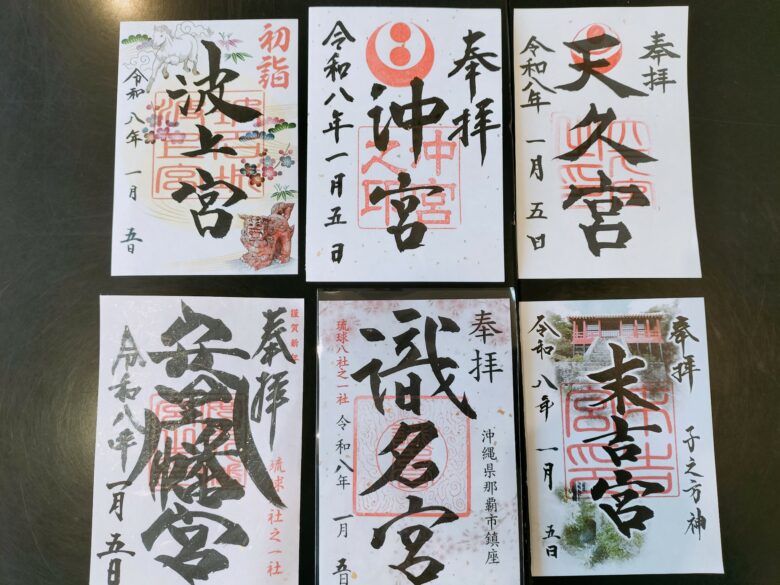 初詣
波上宮
令和八年 一月 五日
奉拝
沖宮
令和八年一月五日
奉拝
天久宮
令和八年 一月 五日
謹賀新年
奉拝
安里八幡宮
琉球八社之一社
令和八年一月五日
奉拝
沖縄県那覇市鎮座
識名宮
琉球八社之一社
令和八年 一月 五日
奉拝
子之方神
末吉宮
令和八年 一月 五日